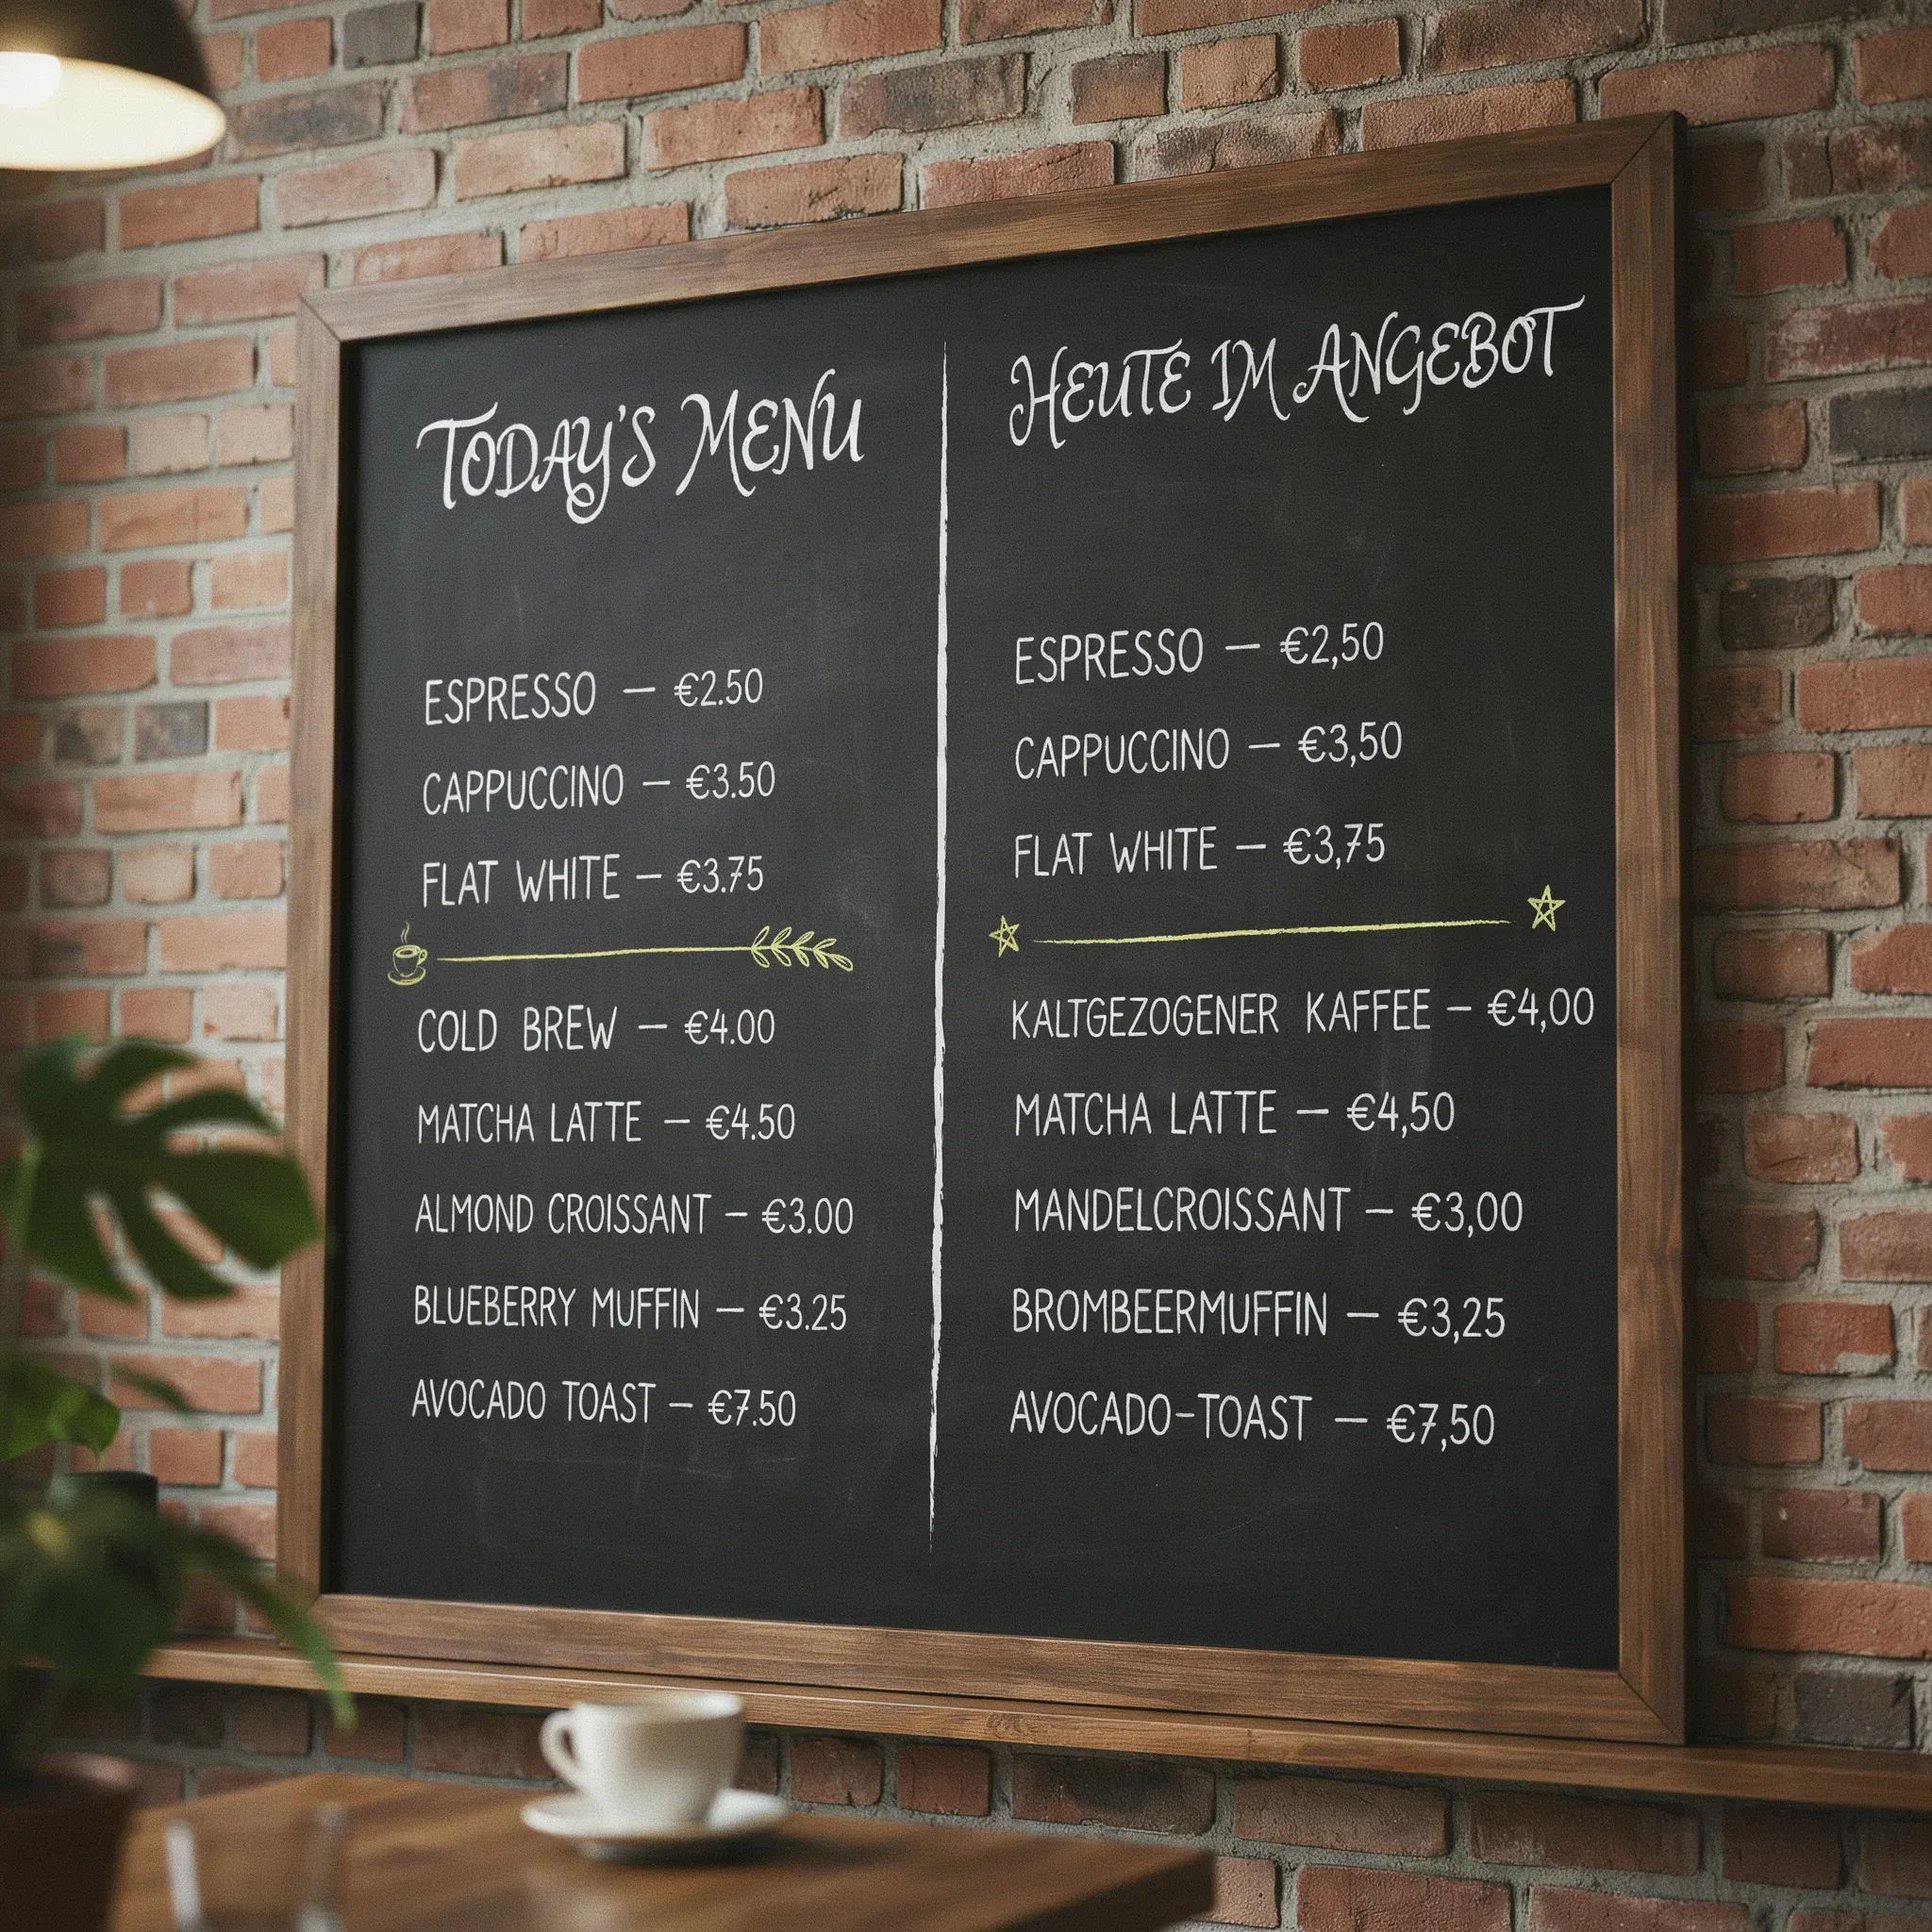 TODAY'S MENU
ESPRESSO — €2.50
CAPPUCCINO — €3.50
FLAT WHITE — €3.75
COLD BREW — €4.00
MATCHA LATTE — €4.50
ALMOND CROISSANT — €3.00
BLUEBERRY MUFFIN — €3.25
AVOCADO TOAST — €7.50
HEUTE IM ANGEBOT
ESPRESSO — €2,50
CAPPUCCINO — €3,50
FLAT WHITE — €3,75
KALTGEZOGENER KAFFEE — €4,00
MATCHA LATTE — €4,50
MANDELCROISSANT — €3,00
BROMBEERMUFFIN — €3,25
AVOCADO-TOAST — €7,50